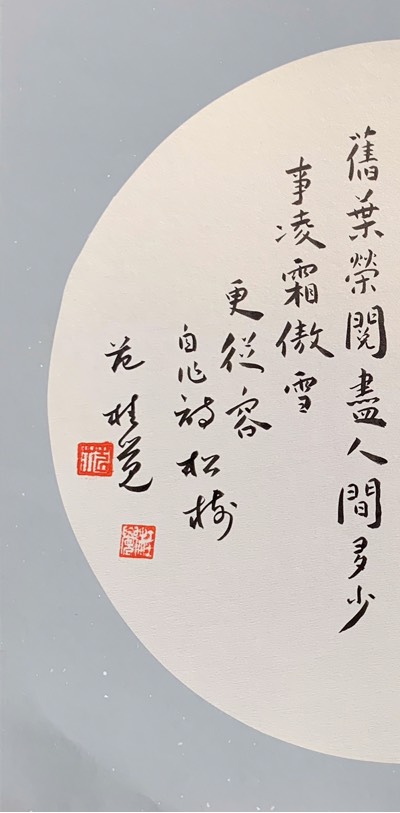 舊葉榮閱盡人間多少
事凌霜傲雪
更從容
自作詩松樹
范桂覺